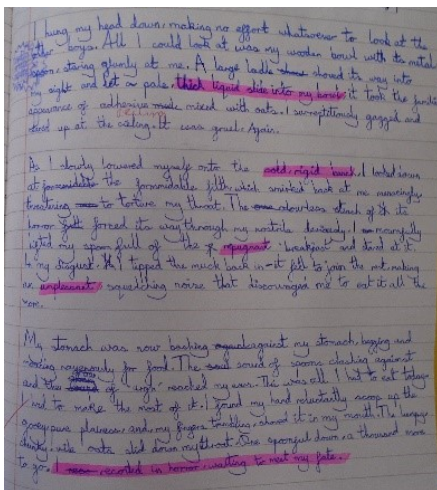 I hung my head down, making no effort whatsoever to look at the
other boys. All I could look at was my wooden bowl with its metal
spoon, staring glumly at me. A large ladle shoved its way into
my sight and let a pale, thick liquid slide into my bowl; it took the
appearance of adhesive mixed with oats. I surreptitiously gagged and
up at the ceiling. It was gruel. Again.
As I slowly lowered myself onto the cold, rigid bench, I looked down
at the formidable filth, which smirked back at me menacingly,
threatening to torture my throat. The odourless stench of its
horror forced its way through my nostrils. I mournfully
lifted my spoon full of the repugnant 'breakfast' and stared at it
in my disgust. As I tipped the muck back in-it fell to join the rest, making
an unpleasant squelching noise that discouraged me to eat it all the
My stomach was now bashing against my stomach, begging and
ravenously for food. The sound of spoons clashing against
and the of 'ugh' reached my ears. This was all I had to eat today
I had to make the most of it. I found my hand reluctantly scoop up the
gooey, pure plainness, and my fingers trembling, shoved it in my mouth. The
chunky, vile oats slid down my throat. One spoonful down, a thousand more
to go. I recoiled in horror, waiting to meet my fate.